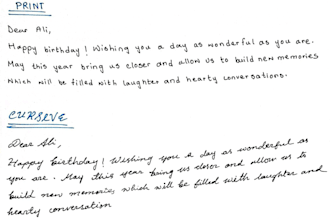 PRINT
Dear Ali,
Happy birthday! Wishing you a day as wonderful as you are.
May this year bring us closer and allow us to build new memories
which will be filled with laughter and hearty conversations.
CURSIVE
Dear Ali,
Happy birthday! Wishing you a day as wonderful as
you are. May this year bring us closer and allow us to
build new memories which will be filled with laughter and
hearty conversation